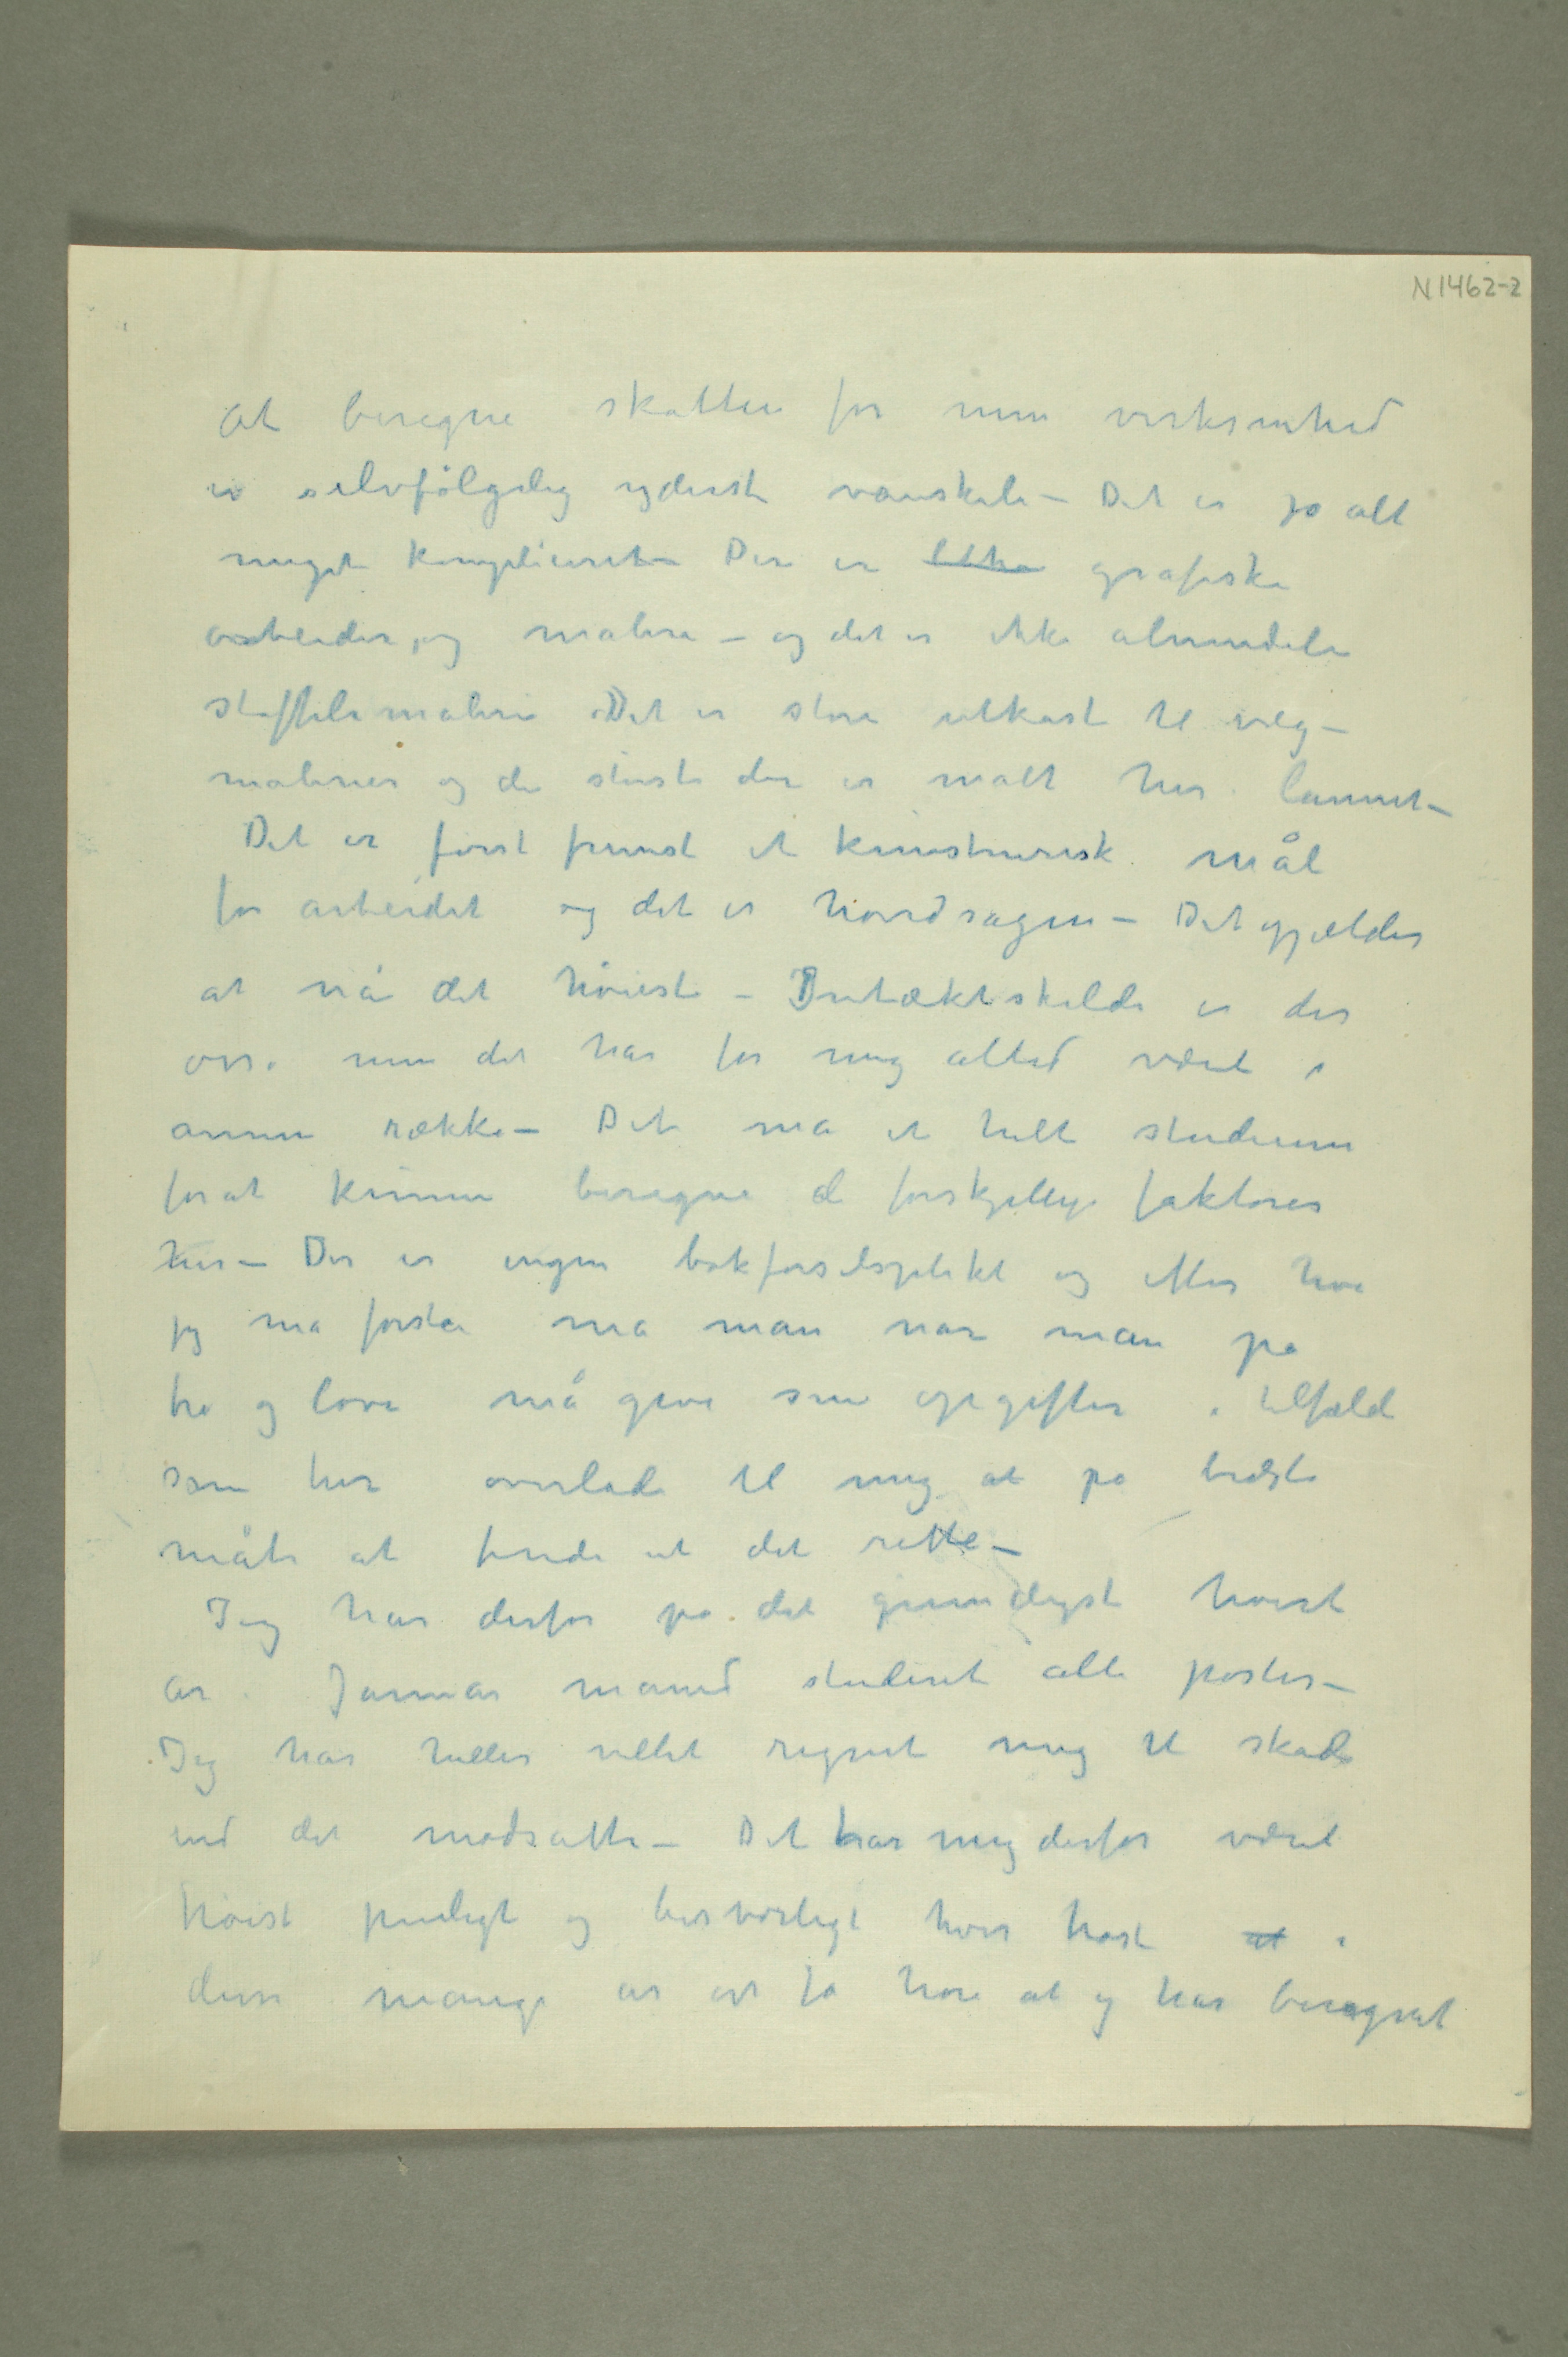 N1462-2
At beregne skatten for min virksomhed
er selvfølgelig yderst vanskeli – Det er jo alt
meget kompliceret – Der er litho grafiske
arbeider, og maleri – og det er ikke almindeli
staffeli maleri Det er store utkast til væg–
malerier og de største der er malt her i lannet –
Det er først fremst et kunstnerisk mål
for arbeidet og det er hovedsagen – Det gjælder
at nå det høieste – Indtæktskilde er der
osså men det har for mig altid været i
annen række – Det må et helt studium
forat kunne beregne de forskjellige faktorer
her – Der er ingen bokførselsplikt og efter hva
jeg må forstå må man når man på
tro og love må give sine opgifter i tilfæld
som her overlade til mig at på bedste
måte at finde ut det rette –
Jeg har derfor på det grundigste hvert
år i Januar måned studeret alle poster –
Jeg har heller villet regnet mig til skade
end det modsatte – Det har mig derfor været
høist pinligt og besværligt hver høst at i
disse mange år at få høre at jeg har beregnet